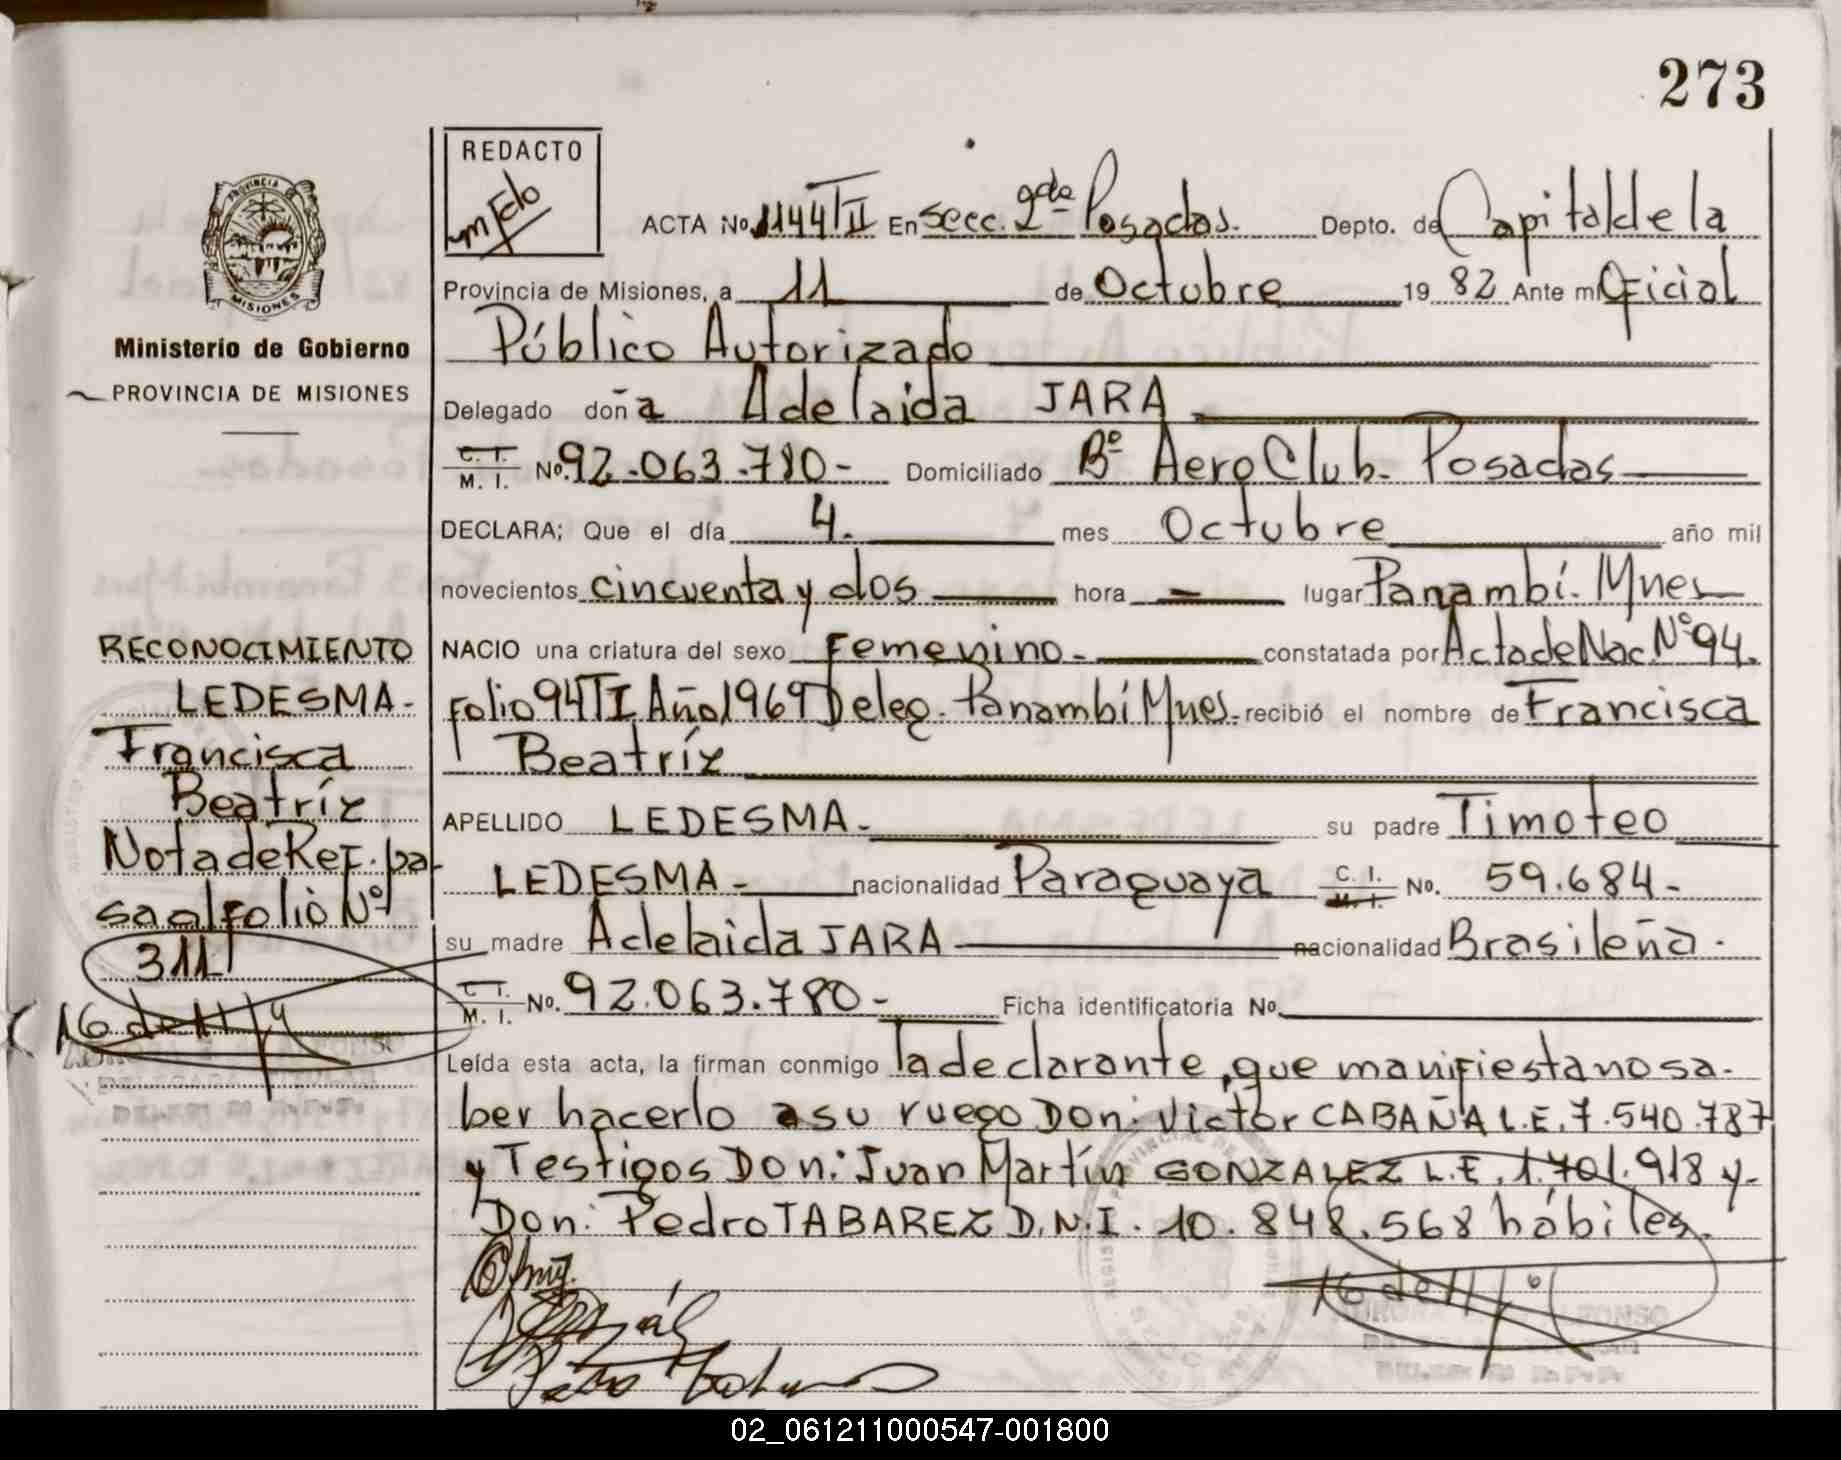 273
REDACTO
PROVINCIA DE
MISIONES
Ministerio de Gobierno
PROVINCIA DE MISIONES
ACTA No. 1144 TII En Secc. 2da Posadas. Depto. de Capital de la
Provincia de Misiones, a 11 de Octubre 19 82 Ante mi Oficial
Público Autorizado
Delegado doña Adelaida JARA
C. I. M. I. No. 92.063.780- Domiciliado Bº Aero Club- Posadas
DECLARA; Que el día 4. mes Octubre año mil
novecientos cincuenta y dos hora - lugar Panambí. Mnes
NACIO una criatura del sexo Femenino- constatada por Acta de Nac. Nº 94.
Folio 94 TI Año 1969 Deleg. Panambí Mnes. recibió el nombre de Francisca
Beatríz
APELLIDO LEDESMA- su padre Timoteo
LEDESMA- nacionalidad Paraguaya C. I. M. I. No. 59.684-
su madre Adelaida JARA nacionalidad Brasileña.
C. I. M. I. No. 92.063.780- Ficha identificatoria No.
Leída esta acta, la firman conmigo la declarante, que manifiesta no sa-
ber hacerlo a su ruego Don: Victor CABAÑA L.E. 7.540.787
y Testigos Don: Juan Martín GONZALEZ L.E. 1.701.918 y-
Don: Pedro TABAREZ D.N.I. 10.848.568 hábiles.
RECONOCIMIENTO
LEDESMA-
Francisca
Beatríz
Nota de Ref. pa-
sa al Folio Nº
311
16 de 11/
16 de 11/
02_061211000547-001800